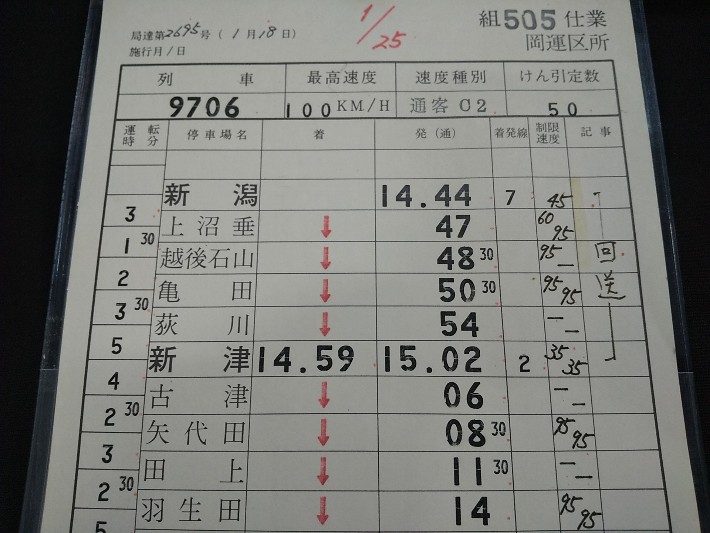 組505仕業
局達第2695号(1月18日)
1/25
岡運区所
施行月/日
列車 最高速度 速度種別 けん引定数
9706 100KM/H 通客C2 50
運転時分 停車場名 着 発(通) 着発線 制限速度 記事
新潟 14.44 7 45
3
上沼垂 ↓ 47 60 95
1 30
越後石山 ↓ 48 30 95 —
回
2
亀田 ↓ 50 30 95 95
送
3 30
荻川 ↓ 54 — —
5
新津 14.59 15.02 2 35 35
4
古津 ↓ 06 — —
2 30
矢代田 ↓ 08 30 95 95
3
田上 ↓ 11 30 — —
2 30
羽生田 ↓ 14 95 95
5